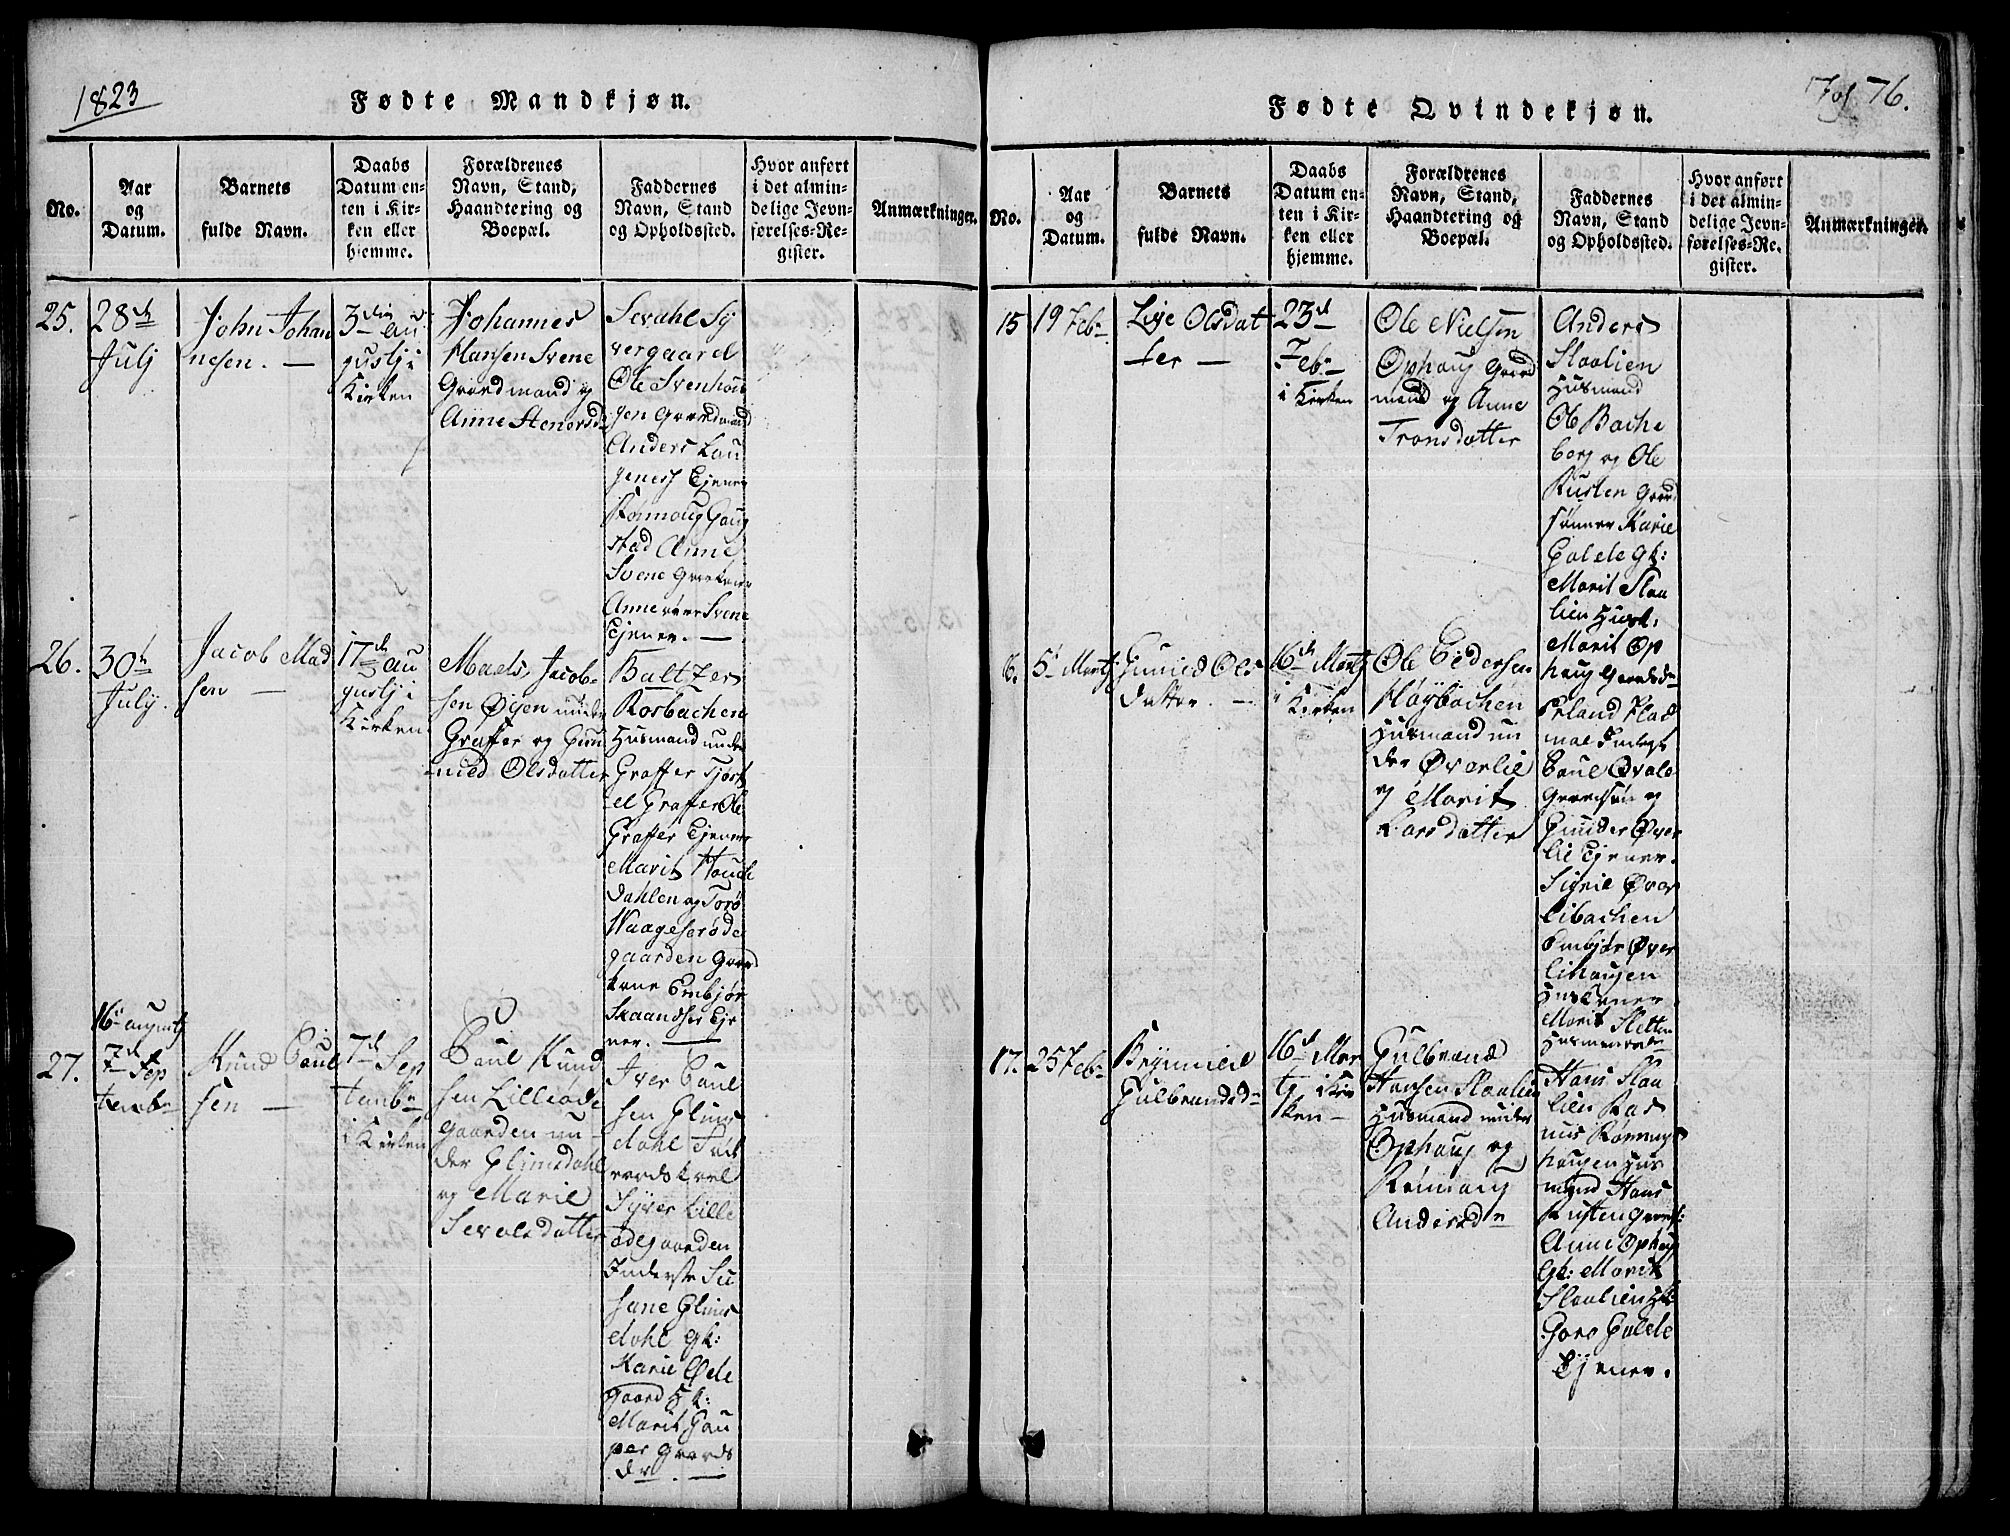 1823
Fødte Mandkjøn.
No.
Aar
og
Datum.
Barnets
fulde Navn.
Daabs
Datum en-
ten i Kir-
ken eller
hjemme.
Forældrenes
Navn, Stand,
Haandtering og
Boepæl.
Faddernes
Navn, Stand
og Opholdssted.
Hvor anført
i det almin-
delige Jevn-
førelses-Re-
gister.
Anmærkninger.
25.
28de
Julj
John Johan
nesen. —
3die au
gustj i
Kirken
Johannes
Hansen Svene
Gaardmand og
Anne Stenersd
Sevahl Sy
vergaard
Ole Svenhou
gen Gaardmand
Anders Lau
Ejener
Gaug
stad Anne
Svene
Anne Svene
Ejener. —
26.
30te
July.
Jacob Mad
sen —
17de au
gustj i
Kirken
Mads Jacob-
sen Øyen under
Graffer og Gun
nild Olsdatter
Baltzer
Rosbachen
Husmand under
Graffer Tjøst
el Graffer Ole
Graffer Ejener
Marit Hou
dahlen og Toro
Waageserøde
gaarden Gaard
kone Embjør
Skaandser Eje
ner. —
27.
16de augustj
7de Sep
tembr
Knud Paul
sen —
7de Sep
tembr
i Kirken
Paul Knud
sen Lilleøde
gaarden un-
der Glimsdahl
og Marie
Sevalsdatter
Iver Paul
sen Glims
dahl
Syver Lille
ødegaarden
Inderste Su
sane Glims
dahl Gk:
Marie Øde
gaard Hk:
Marit Gau
per Gaards
dr. —
Fol 76.
Fødte Qvindekjøn.
No.
Aar
og
Datum.
Barnets
fulde Navn.
Daabs
Datum en-
ten i Kir-
ken eller
hjemme.
Forældrenes
Navn, Stand,
Haandtering og
Boepæl.
Faddernes
Navn, Stand
og Opholdssted.
Hvor anført
i det almin-
delige Jevn-
førelses-Re-
gister.
Anmærkninger.
15
19 Febr
Lise Olsdat
ter —
23d
Febr
i Kirken
Ole Nielsen
Ophaug Gaard
mand og Anne
Tronsdatter
Anders
Slaalien
Husmand
Ole Bache
berg og Ole
Rusten Gaard
sønner Marie
Galde gk:
Marit Slaa
lien Husk.
Marit Op
haug Gaardsdr
6.
5te Martj
Gunild Ols
datter. —
16de Martj
i Kirken
Ole Pedersen
Høybachen
Husmand un
der Øverlie
og Marit
Larsdatter
Erland Flad
moe
Paul Qvale
Gaardsøn og
Øver
lie Ejener.
Sigrie Øver
libachen
Embjør Øver
lihaugen
Huskoner
Marit Sletten
17.
25 Febr
Brynnild
Gulbrandsdr
16de Mar
tj i Kir
ken —
Gulbrand
Hansen Slaalien
Husmand under
Ophaug og
Rønnaug
Andersdr
Hans Slaa
lien Ras
mus Rønnings
haugen Hus
mand Hans
Rusten
Anne Ophaug
Gk: Marit
Slaalien Hk:
Goro Galde
Ejener.